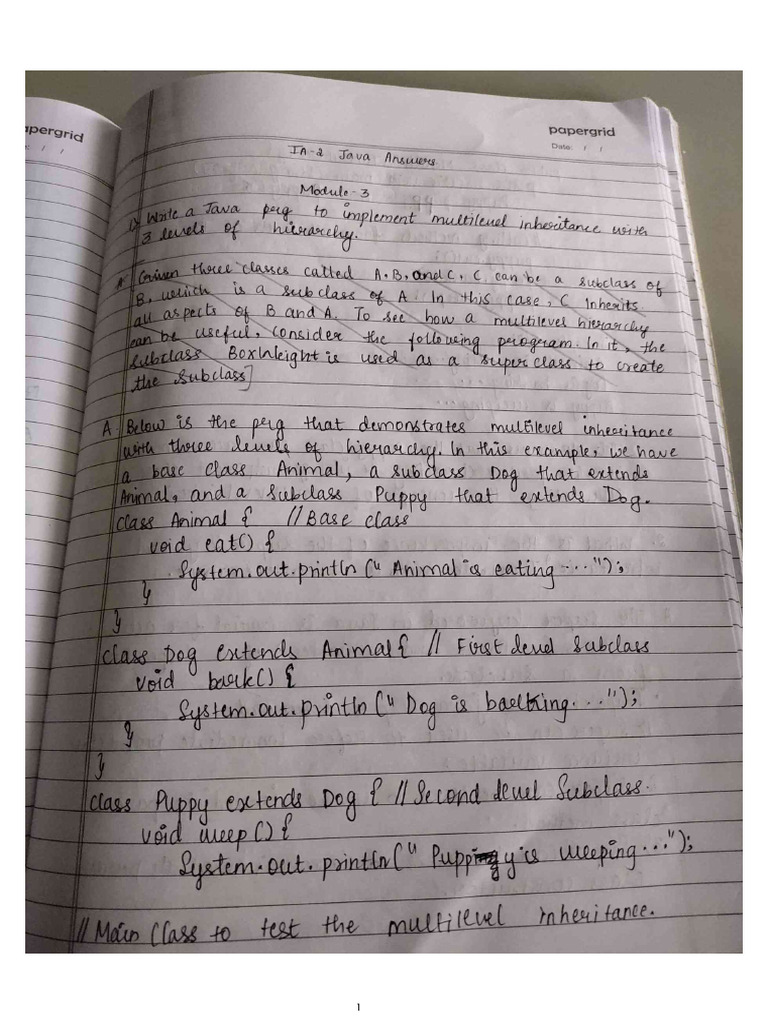 apergrid
: / /
papergrid
Date: / /
IA-2 Java Answers
Module-3
1) Write a Java prg to implement multilevel inheritance with
3 levels of hierarchy.
A. Given three classes called A, B, and C, C can be a subclass of
B, which is a subclass of A. In this case, C Inherits
all aspects of B and A. To see how a multilevel hierarchy
can be useful, consider the following program. In it, the
subclass BoxWeight is used as a superclass to create
the subclass]
A. Below is the prg that demonstrates multilevel inheritance
with three levels of hierarchy. In this example, we have
a base class Animal, a subclass Dog that extends
Animal, and a subclass Puppy that extends Dog.
class Animal { // Base class
void eat() {
System.out.println (" Animal is eating ...");
}
}
class Dog extends Animal { // First level Subclass
void bark() {
System.out.println (" Dog is barking...");
}
}
class Puppy extends Dog { // Second level Subclass.
void weep () {
System.out.println(" Puppy is weeping...");
// Main Class to test the multilevel inheritance.
1